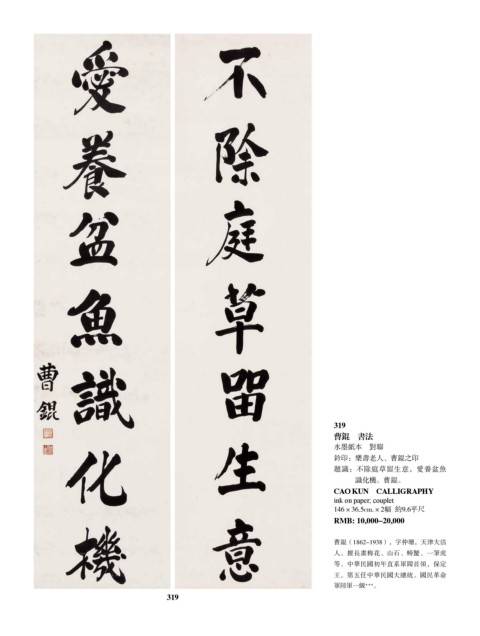 不除庭草留生意
愛養盆魚識化機
曹錕
319
曹錕　書法
水墨紙本　對聯
鈐印：樂壽老人、曹錕之印
題識：不除庭草留生意，愛養盆魚
識化機。曹錕。
CAO KUN　CALLIGRAPHY
ink on paper; couplet
146 × 36.5cm. × 2幅　約9.6平尺
RMB: 10,000–20,000
曹錕（1862–1938），字仲珊，天津大沽
人。擅長畫梅花、山石、螃蟹、一筆虎
等。中華民國初年直系軍閥首領，保定
王，第五任中華民國大總統。國民革命
軍陸軍一級***。
319